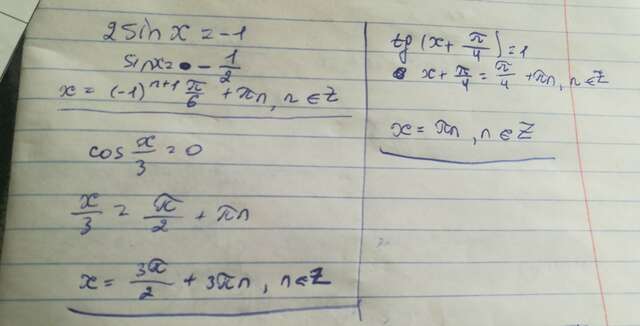 2 sin x = -1
sin x = - 1/2
x = (-1)^{n+1} π/6 + πn, n ∈ Z
cos x/3 = 0
x/3 = π/2 + πn
x = 3π/2 + 3πn, n ∈ Z
tg (x + π/4) = 1
x + π/4 = π/4 + πn, n ∈ Z
x = πn, n ∈ Z